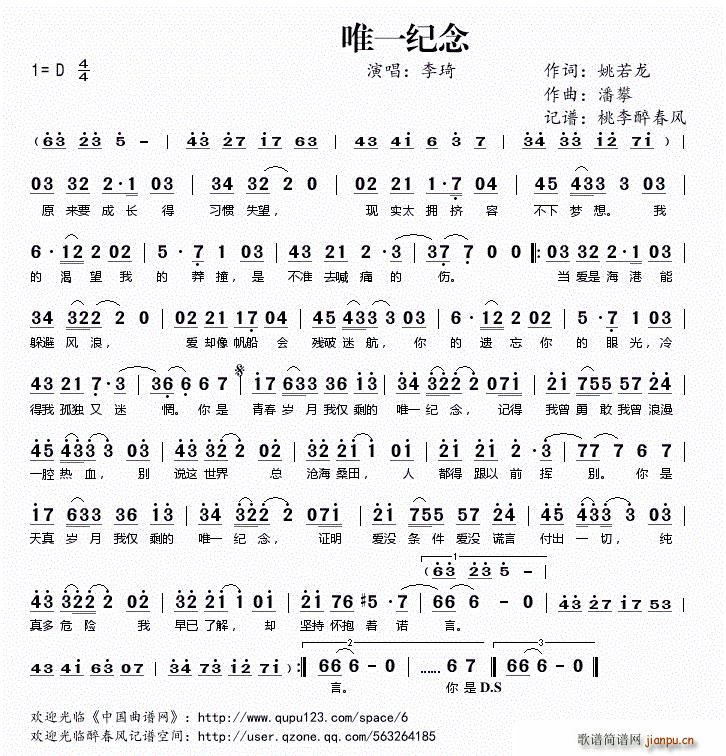 唯一纪念
1=D 4/4 演唱：李琦 作词：姚若龙
作曲：潘攀
记谱：桃李醉春风
（63 23 5 - | 43 27 17 63 | 43 41 6 3 7 | 34 33 12 71 ）|
03 32 2·1 03 | 34 32 2 0 | 02 21 1·7 04 | 45 433 3 03 |
原来要成长得 习惯失望， 现实太拥挤容 不下梦想。我
6·12 2 02 | 5·7 1 03 | 43 21 2·3 | 37 7 0 0 ‖: 03 32 2·1 03 |
的渴望我的莽撞，是 不准去喊痛的伤。 当爱是海港能
34 322 2 0 | 02 21 17 04 | 45 433 3 03 | 6·12 2 02 | 5·7 1 03 |
躲避风浪， 爱却像帆船会 残破迷航，你的遗忘你的眼光，冷
43 21 7·3 | 36 6 6 7 | 17 633 36 13 | 34 322 2 071 | 21 755 57 24 |
得我孤独又迷惘。你是 青春岁月我仅剩的 唯一纪念，记得 我曾勇敢我曾浪漫
45 433 3 03 | 34 32 2 02 | 21 17 1 01 | 21 75 2·3 | 77 7 6 7 |
一腔热血，别 说这世界总 沧海桑田，人 都得跟以前挥别。你是
17 633 36 13 | 34 322 2 071 | 21 755 57 24 | 45 433 3 03 |
天真岁月我仅剩的 唯一纪念，证明 爱没条件爱没谎言 付出一切，纯
1
（63 23 5 -
43 322 2 02 | 32 21 1 01 | 21 76 #5·7 | 66 6 - 0 | 43 27 17 53 |
真多危险 我 早已了解，却 坚持怀抱着诺言。
2 3
43 41 63 07 | 34 73 12 71）:‖ 66 6 - 0 | …… 6 7 ‖ 66 6 - 0 ‖
言。 你是D.S
欢迎光临《中国曲谱网》：http://www.qupu123.com/space/6
欢迎光临醉春风记谱空间：http://user.qzone.qq.com/563264185
歌谱简谱网
jianpu.cn